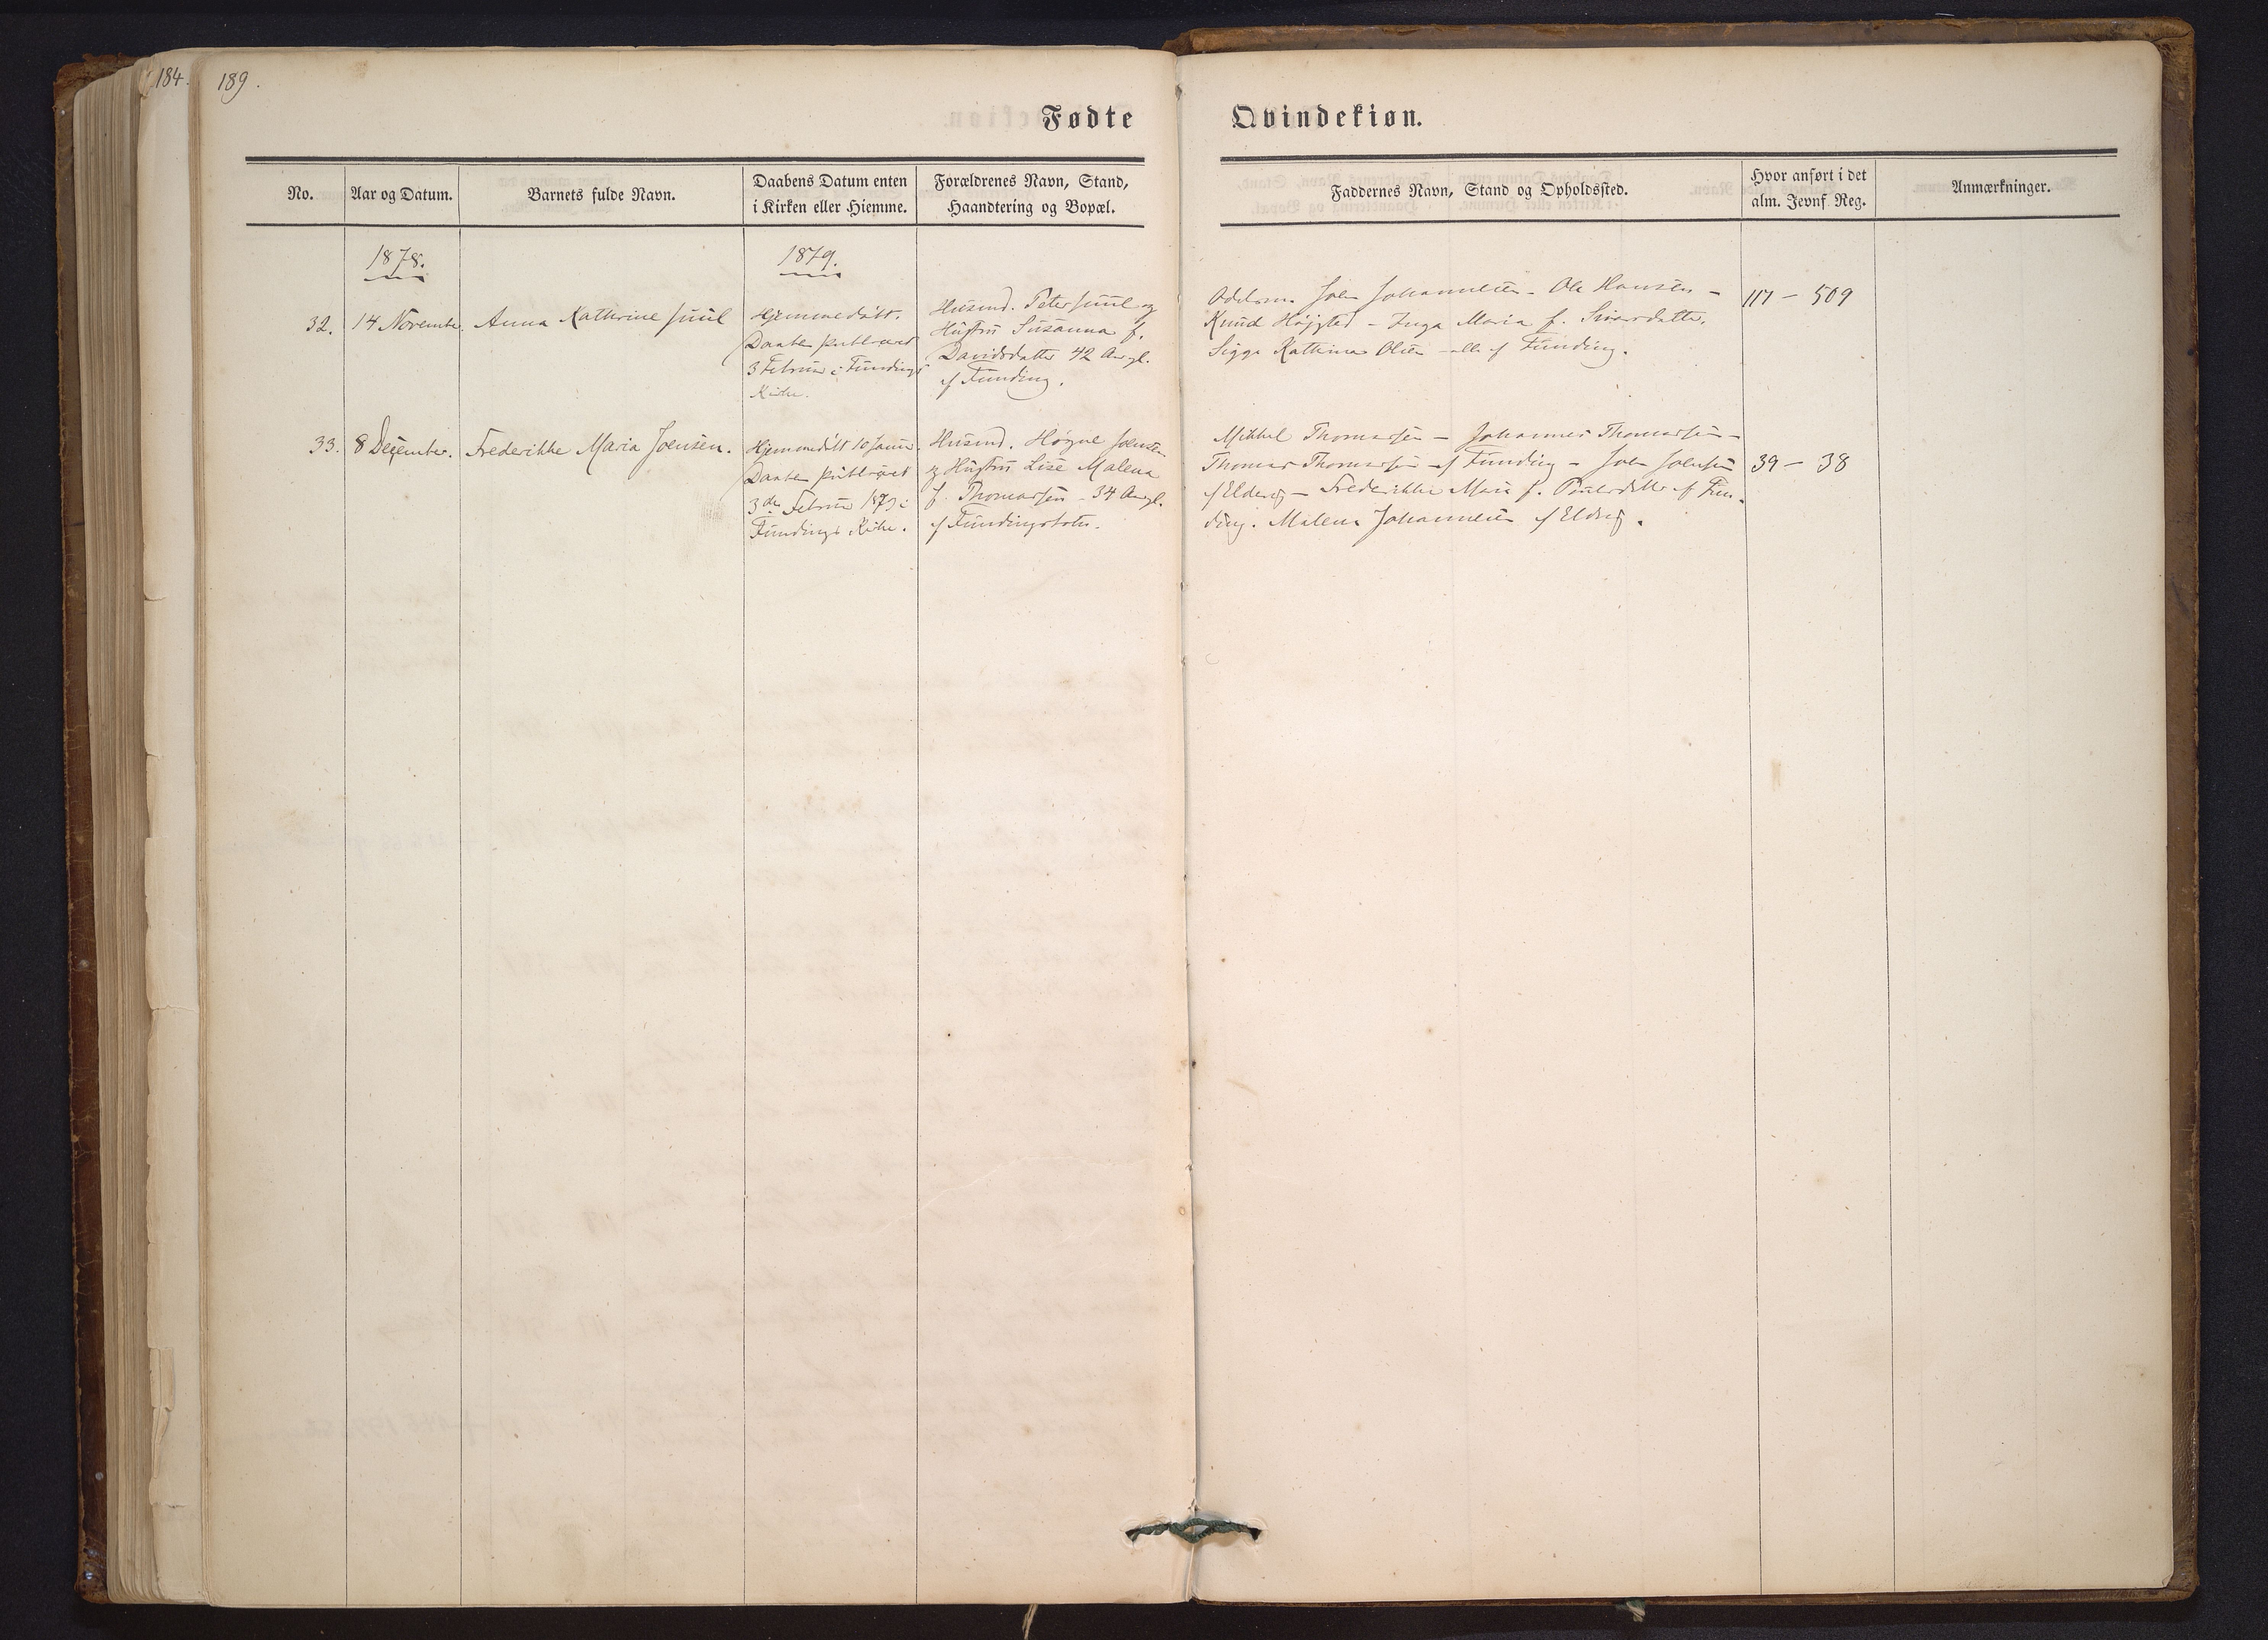 184.
189.
Fødte Qvindekiøn.
No.
Aar og Datum.
Barnets fulde Navn.
Daabens Datum enten
i Kirken eller Hiemme.
Forældrenes Navn, Stand,
Haandtering og Bopæl.
Faddernes Navn, Stand og Opholdssted.
Hvor anført i det
alm. Jevnf. Reg.
Anmærkninger.
1878.
1879.
32.
14 Novembe.
Anna Kathrine Juul
Hjemmedøbt.
Daaben publiceret
3 Februar i Fundings
Kirke.
Husmd. Peter Juul og
Hustru Susanna f.
Davidsdatter 42 Aar gl.
af Funding.
Joen Johannesen - Ole Hansen -
Knud Højsted - Inga Maria f. Sivarsdatter.
Sigga Kathrina Olsen - alle af Funding.
117 - 509
33.
8 December.
Frederikke Maria Joensen.
Hjemmedøbt 10 Januar.
Daaben publiceret
3de Februar 1879 i
Fundings Kirke.
Husmd. Høgne Joensen
og Hustru Lise Malena
f. Thomassen - 34 Aar gl.
af Fundingsbotn.
Mikkel Thomassen - Johannes Thomassen -
Thomas Thomassen af Funding - Joen Joensen
af Eldevig - Frederikke Marie f. Poulsdatter af Fun-
ding. Malena Johannesen af Eldevig.
39 - 38